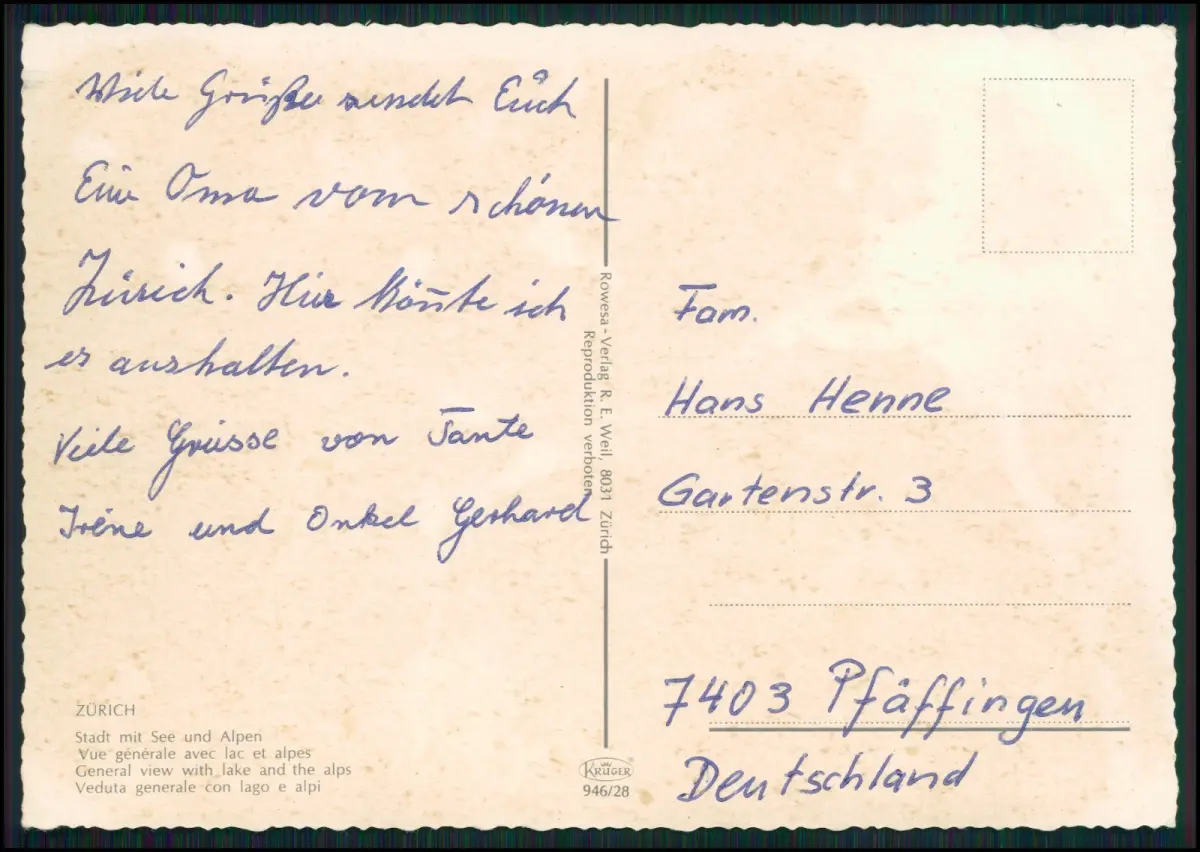 Viele Grüße sendet Euch
Eure Oma vom schönen
Zürich. Hier könnte ich
es aushalten.
Viele Grüsse von Tante
Irène und Onkel Gerhard
ZÜRICH
Stadt mit See und Alpen
Vue générale avec lac et alpes
General view with lake and the alps
Veduta generale con lago e alpi
Rowesa-Verlag R. E. Weil, 8031 Zürich
Reproduktion verboten
KRÜGER
946/28
Fam.
Hans Henne
Gartenstr. 3
7403 Pfäffingen
Deutschland